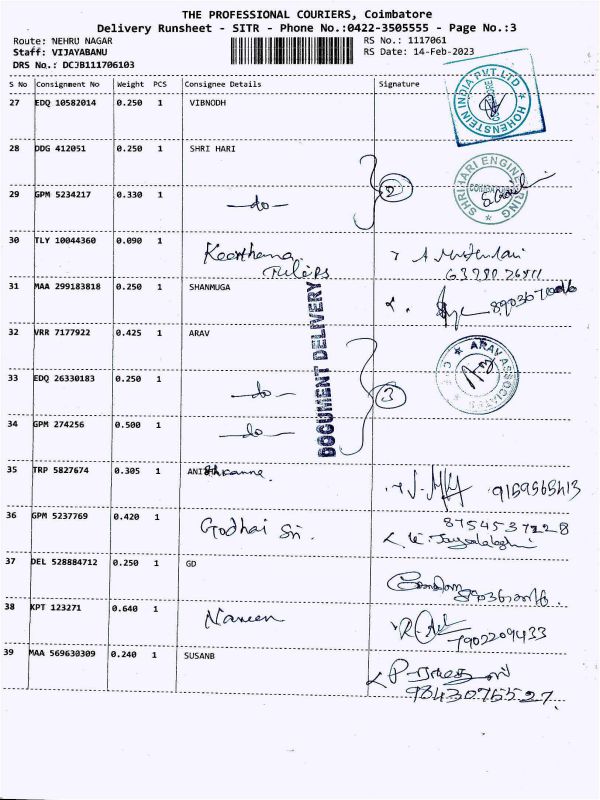 THE PROFESSIONAL COURIERS, Coimbatore
Delivery Runsheet - SITR - Phone No.:0422-3505555 - Page No.:3
Route: NEHRU NAGAR
RS No.: 1117061
Staff: VIJAYABANU
RS Date: 14-Feb-2023
DRS No.: DCJB111706103
S No Consignment No Weight PCS Consignee Details Signature
27 EDQ 10582014 0.250 1 VIBNODH
HOHENSTEIN INDIA PVT. LTD
28 DDG 412051 0.250 1 SHRI HARI
SHRI HARI ENGINEERING
29 GPM 5234217 0.330 1 -do- 2
30 TLY 10044360 0.090 1 Keerthana
31 MAA 299183818 0.250 1 SHANMUGA
DOCUMENT DELIVERY
32 VRR 7177922 0.425 1 ARAV
ARAV ASSOCIATES
33 EDQ 26330183 0.250 1 -do- 3
34 GPM 274256 0.500 1 -do-
35 TRP 5827674 0.305 1 9159565413
36 GPM 5237769 0.420 1 Godhai Sri. 8754537228
37 DEL 528884712 0.250 1 GD
38 KPT 123271 0.640 1 Naveen 7902209433
39 MAA 569630309 0.240 1 SUSANB
9843075527.